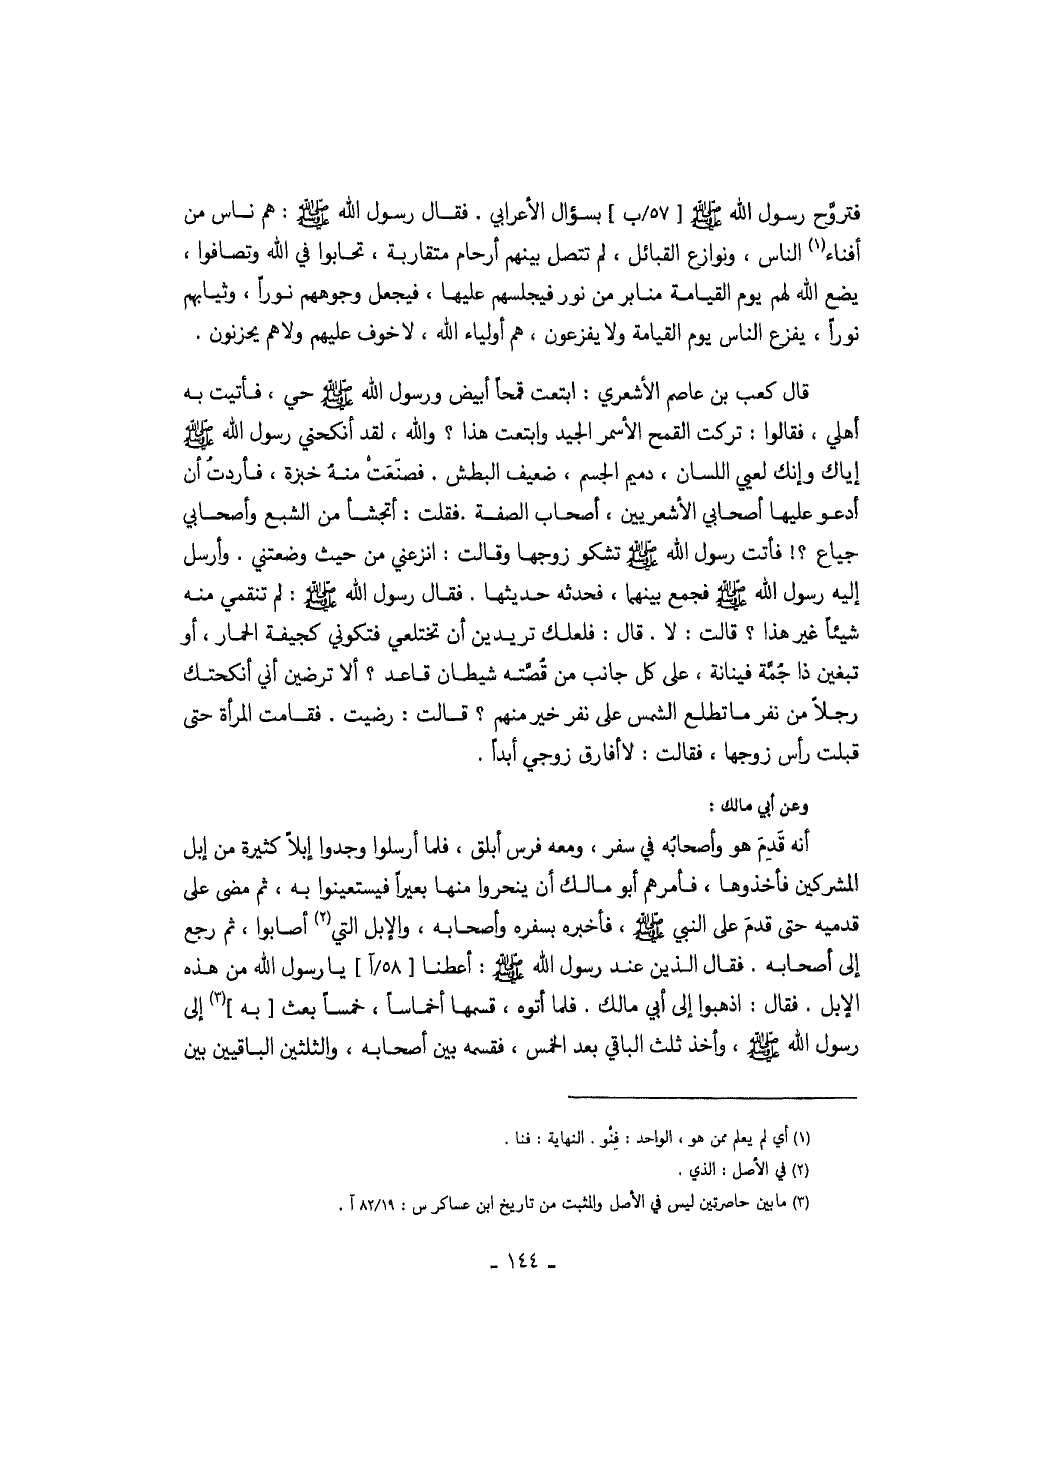 فتروَّح رسول الله ﷺ [ ٥٧/ب ] بسؤال الأعرابي . فقال رسول الله ﷺ : هم ناس من
أفناء(١) الناس ، ونوازع القبائل ، لم تتصل بينهم أرحام متقاربة ، تحابوا في الله وتصافوا ،
يضع الله لهم يوم القيامة منابر من نور فيجلسهم عليها ، فيجعل وجوههم نوراً ، وثيابهم
نوراً ، يفزع الناس يوم القيامة ولا يفزعون ، هم أولياء الله ، لا خوف عليهم ولاهم يحزنون .
قال كعب بن عاصم الأشعري : ابتعت قمحاً أبيض ورسول الله ﷺ حي ، فأتيت به
أهلي ، فقالوا : تركت القمح الأسمر الجيد وابتعت هذا ؟ والله ، لقد أنكحني رسول الله ﷺ
إياك وإنك لعيي اللسان ، دميم الجسم ، ضعيف البطش . فصنَعَتْ منهُ خبزة ، فأردتُ أن
أدعو عليها أصحابي الأشعريين ، أصحاب الصفة .فقلت : أتجشأ من الشبع وأصحابي
جياع ؟! فأتت رسول الله ﷺ تشكو زوجها وقالت : انزعني من حيث وضعتني . وأرسل
إليه رسول الله ﷺ فجمع بينهما ، فحدثه حديثها . فقال رسول الله ﷺ : لم تنقمي منه
شيئاً غير هذا ؟ قالت : لا . قال : فلعلك تريدين أن تختلعي فتكوني كجيفة الحمار ، أو
تبغين ذا جُمَّة فينانة ، على كل جانب من قُصَّته شيطان قاعد ؟ ألا ترضين أني أنكحتك
رجلاً من نفر ماتطلع الشمس على نفر خير منهم ؟ قالت : رضيت . فقامت المرأة حتى
قبلت رأس زوجها ، فقالت : لاأفارق زوجي أبداً .
وعن أبي مالك :
أنه قَدِمَ هو وأصحابُه في سفر ، ومعه فرس أبلق ، فلما أرسلوا وجدوا إبلاً كثيرة من إبل
المشركين فأخذوها ، فأمرهم أبو مالك أن ينحروا منها بعيراً فيستعينوا به ، ثم مضى على
قدميه حتى قدمَ على النبي ﷺ ، فأخبره بسفره وأصحابه ، والإبل التي(٢) أصابوا ، ثم رجع
إلى أصحابه . فقال الذين عند رسول الله ﷺ : أعطنا [ ٥٨/آ ] يارسول الله من هذه
الإبل . فقال : اذهبوا إلى أبي مالك . فلما أتوه ، قسمها أخماساً ، خمساً بعث [ به ](٣) إلى
رسول الله ﷺ ، وأخذ ثلث الباقي بعد الخمس ، فقسمه بين أصحابه ، والثلثين الباقيين بين
(١) أي لم يعلم ممن هو ، الواحد : فِنْو . النهاية : فنا .
(٢) في الأصل : الذي .
(٣) مابين حاصرتين ليس في الأصل والمثبت من تاريخ ابن عساكر س : ٨٢/١٩ آ .
ـ ١٤٤ ـ